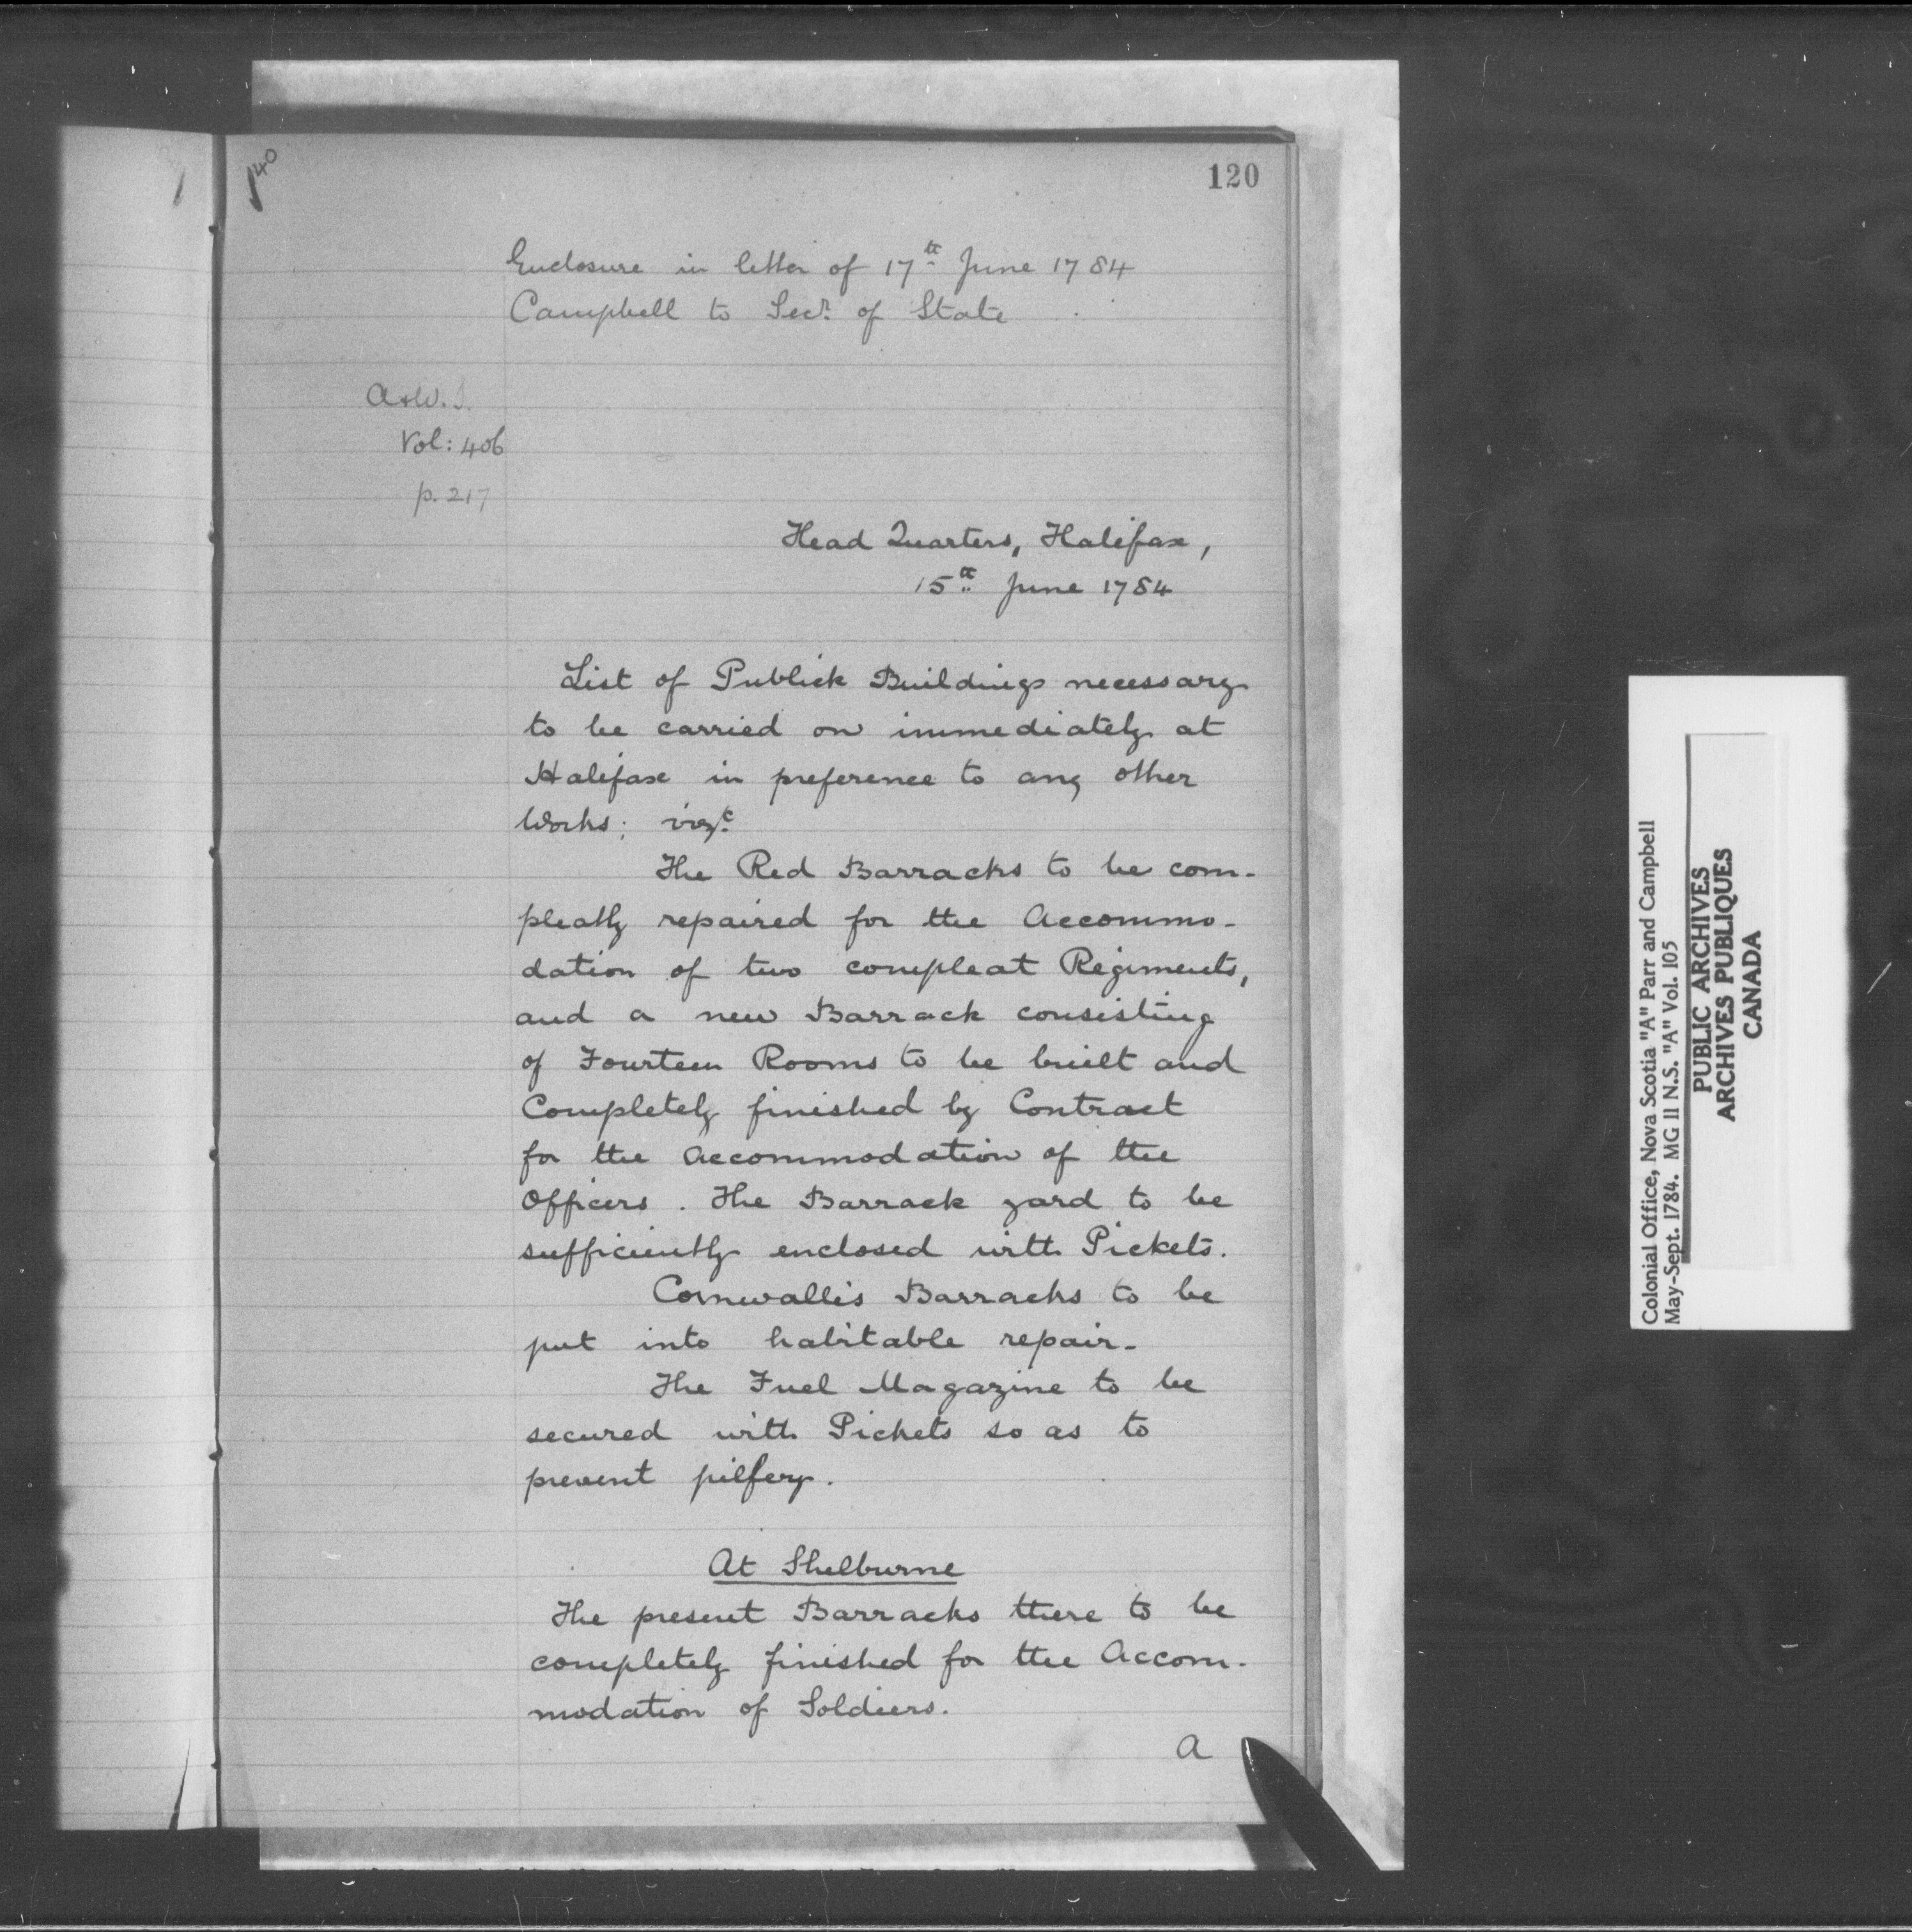 140
120
Enclosure in letter of 17th June 1784
Campbell to Secr. of State
A & W. I.
Vol: 406
p. 217
Head Quarters, Halifax,
15th June 1784
List of Publick Buildings necessary
to be carried on immediately at
Halifax in preference to any other
Works; vizt.
The Red Barracks to be com-
pleatly repaired for the Accommo-
dation of two compleat Regiments,
and a new Barrack consisting
of Fourteen Rooms to be built and
Completely finished by Contract
for the Accommodation of the
Officers. The Barrack yard to be
sufficiently enclosed with Pickets.
Cornwallis Barracks to be
put into habitable repair-
The Fuel Magazine to be
secured with Pickets so as to
prevent pilfery.
At Shelburne
The present Barracks there to be
completely finished for the Accom-
modation of Soldiers.
A
Colonial Office, Nova Scotia "A" Parr and Campbell
May-Sept. 1784. MG 11 N.S. "A" Vol. 105
PUBLIC ARCHIVES
ARCHIVES PUBLIQUES
CANADA